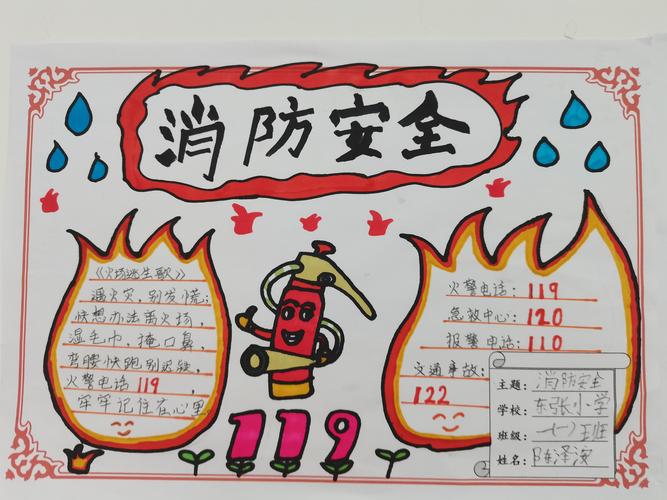 消防安全
《火场逃生歌》
遇火灾,别发慌;
快想办法离火场,
湿毛巾,掩口鼻
弯腰快跑别迟疑,
火警电话119,
牢牢记住在心里
119
火警电话:119
急救中心:120
报警电话:110
交通事故:
122
主题:消防安全
学校:东张小学
班级:一(一)班
姓名:陈泽